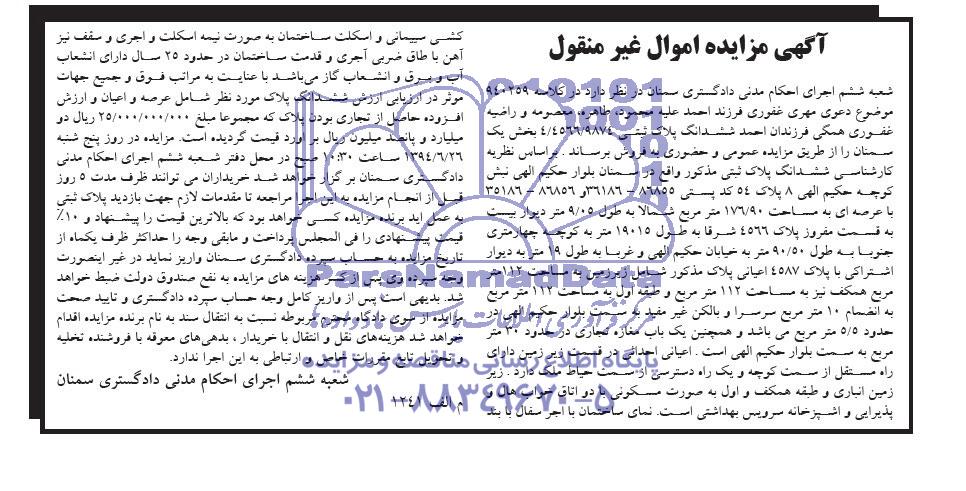 آگهی مزایده اموال غیر منقول
شعبه ششم اجرای احکام مدنی دادگستری سمنان در نظر دارد در کلاسه ۹۴۰۲۵۹
موضوع دعوی مهری غفوری فرزند احمد علیه محمود، طاهره، معصومه و راضیه
غفوری همگی فرزندان احمد ششدانگ پلاک ثبتی ۴/۴۵۶۶/۹۸۷۴ بخش یک
سمنان را از طریق مزایده عمومی و حضوری به فروش برساند . براساس نظریه
کارشناسی ششدانگ پلاک ثبتی مذکور واقع در سمنان بلوار حکیم الهی نبش
کوچه حکیم الهی ۸ پلاک ۵۴ کد پستی ۸۶۸۵۵ – ۳۶۱۸۶و ۸۶۸۵۶ – ۳۵۱۸۶
با عرصه ای به مساحت ۱۷۶/۹۰ متر مربع شمالا به طول ۹/۰۵ متر دیوار بیست
به قسمت مفروز پلاک ۴۵۶۶ شرقا به طول ۱۹۰۱۵ متر به کوچه چهارمتری
جنوبا به طول ۹۰/۵۰ متر به خیابان حکیم الهی و غربا به طول ۱۹ متر به دیوار
اشتراکی با پلاک ۴۵۸۷ اعیانی پلاک مذکور شامل زیرزمین به مساحت ۱۱۲متر
مربع همکف نیز به مساحت ۱۱۲ متر مربع و طبقه اول به مساحت ۱۱۲ متر مربع
به انضمام ۱۰ متر مربع سرسرا و بالکن غیر مفید به سمت بلوار حکیم الهی در
حدود ۵/۵ متر مربع می باشد و همچنین یک باب مغازه تجاری در حدود ۳۰ متر
مربع به سمت بلوار حکیم الهی است . اعیانی احداثی در قسمت زیر زمین دارای
راه مستقل از سمت کوچه و یک راه دسترسی از سمت حیاط ملک دارد . زیر
زمین انباری و طبقه همکف و اول به صورت مسکونی با دو اتاق خواب هال و
پذیرایی و آشپزخانه سرویس بهداشتی است. نمای ساختمان با اجر سفال با بند
کشی سیمانی و اسکلت ساختمان به صورت نیمه اسکلت و اجری و سقف نیز
آهن با طاق ضربی آجری و قدمت ساختمان در حدود ۲۵ سال دارای انشعاب
آب و برق و انشعاب گاز می‌باشد با عنایت به مراتب فوق و جمیع جهات
موثر در ارزیابی ارزش ششدانگ پلاک مورد نظر شامل عرصه و اعیان و ارزش
افزوده حاصل از تجاری بودن پلاک که مجموعا مبلغ ۲۵/۰۰۰/۰۰۰/۰۰۰ ریال دو
میلیارد و پانصد میلیون ریال بر آورد قیمت گردیده است. مزایده در روز پنج شنبه
۱۳۹۴/۶/۲۶ ساعت ۱۰:۳۰ صبح در محل دفتر شعبه ششم اجرای احکام مدنی
دادگستری سمنان بر گزار خواهد شد خریداران می توانند ظرف مدت ۵ روز
قبل از انجام مزایده به این اجرا مراجعه تا مقدمات لازم جهت بازدید پلاک ثبتی
به عمل آید برنده مزایده کسی خواهد بود که بالاترین قیمت را پیشنهاد و ۱۰٪
قیمت پیشنهادی را فی المجلس پرداخت و مابقی وجه را حداکثر ظرف یکماه از
تاریخ مزایده به حساب سپرده دادگستری سمنان واریز نماید در غیر اینصورت
وجه سپرده وی پس از کسر هزینه های مزایده به نفع صندوق دولت ضبط خواهد
شد. بدیهی است پس از واریز کامل وجه حساب سپرده دادگستری و تایید صحت
مزایده از سوی دادگاه محترم مربوطه نسبت به انتقال سند به نام برنده مزایده اقدام
خواهد شد هزینه‌های نقل و انتقال با خریدار ، بدهی‌های معوقه با فروشنده تخلیه
و تحویل تابع مقررات خاص و ارتباطی به این اجرا ندارد.
شعبه ششم اجرای احکام مدنی دادگستری سمنان
م الف ۱۲۴۱
ParsNamadData
پایگاه اطلاع رسانی مناقصه و مزایده
۰۲۱-۸۸۳۴۹۶۷۰-۵